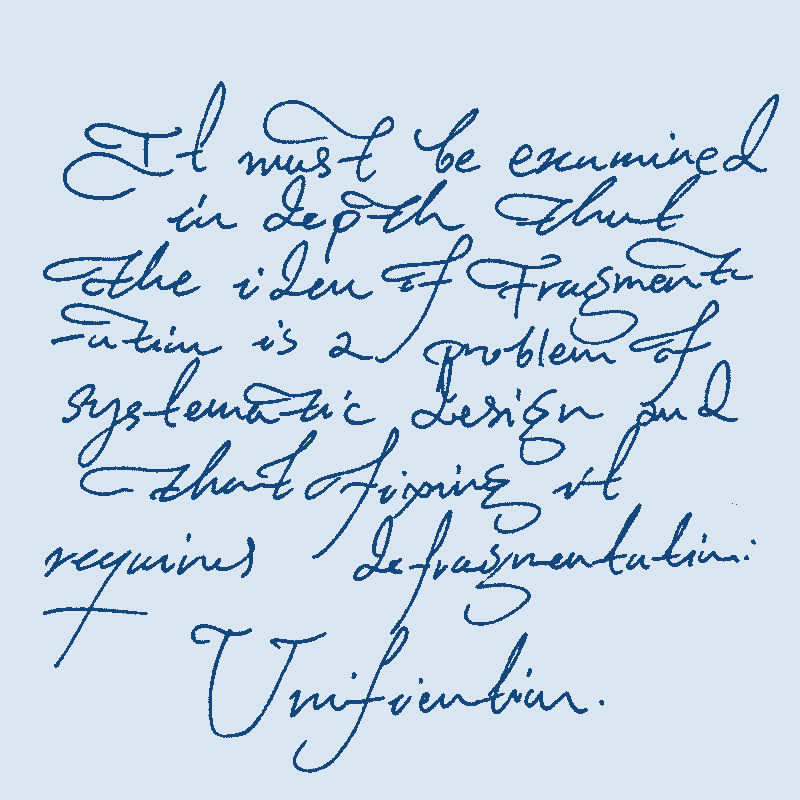 It must be examined
in depth that
the idea of Fragment
-ation is a problem of
systematic design and
that fixing it
requires defragmentation:
Unification.